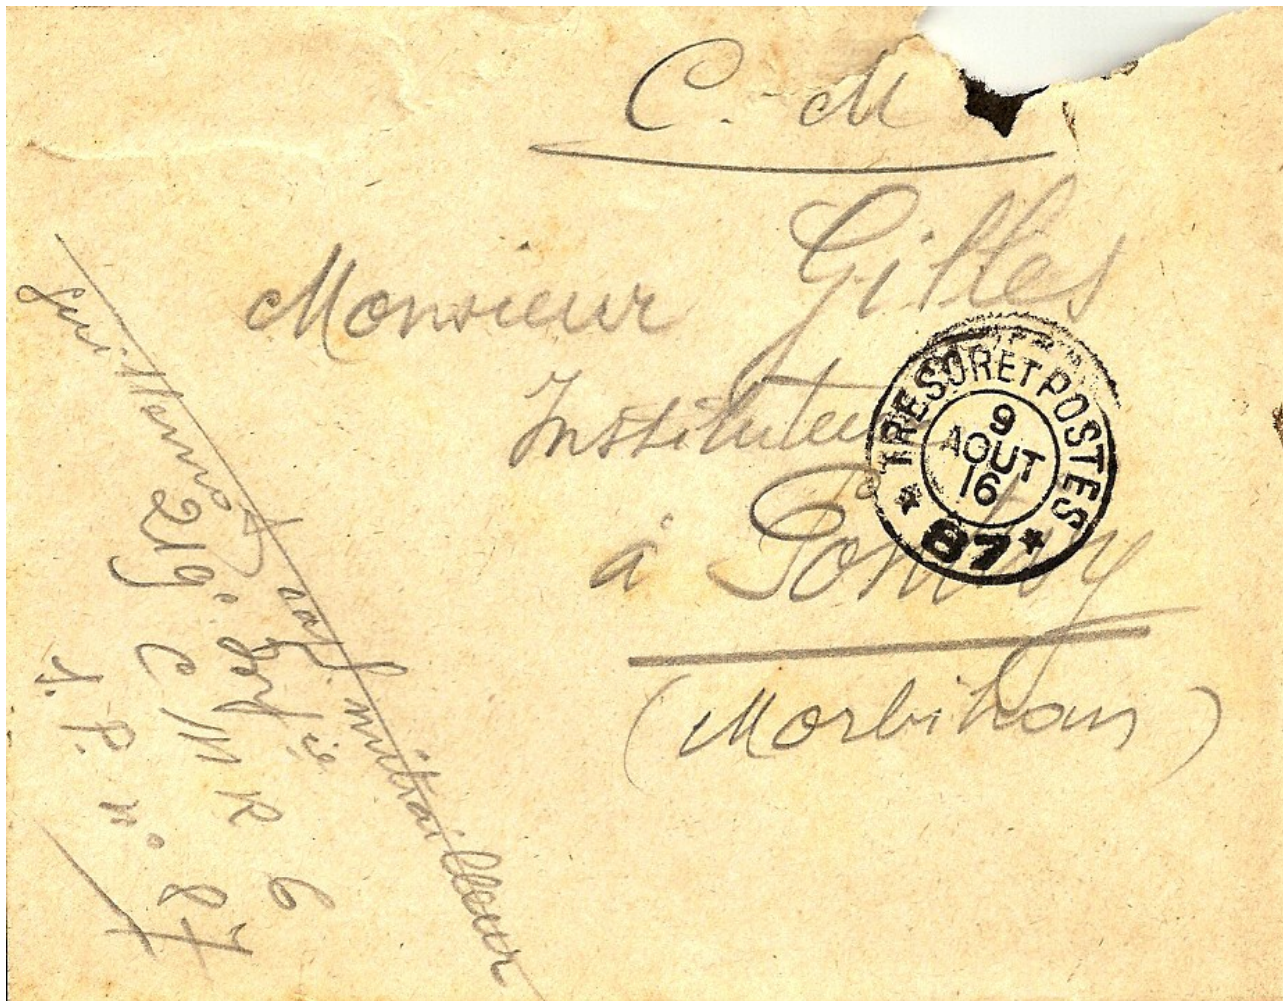 C. M
Monsieur Gilles
Instituteur
à Pontivy
(Morbihan)
TRESOR ET POSTES
9
AOUT
16
* 87 *
mitrailleur
219e
C M R 6
S. P. n° 87